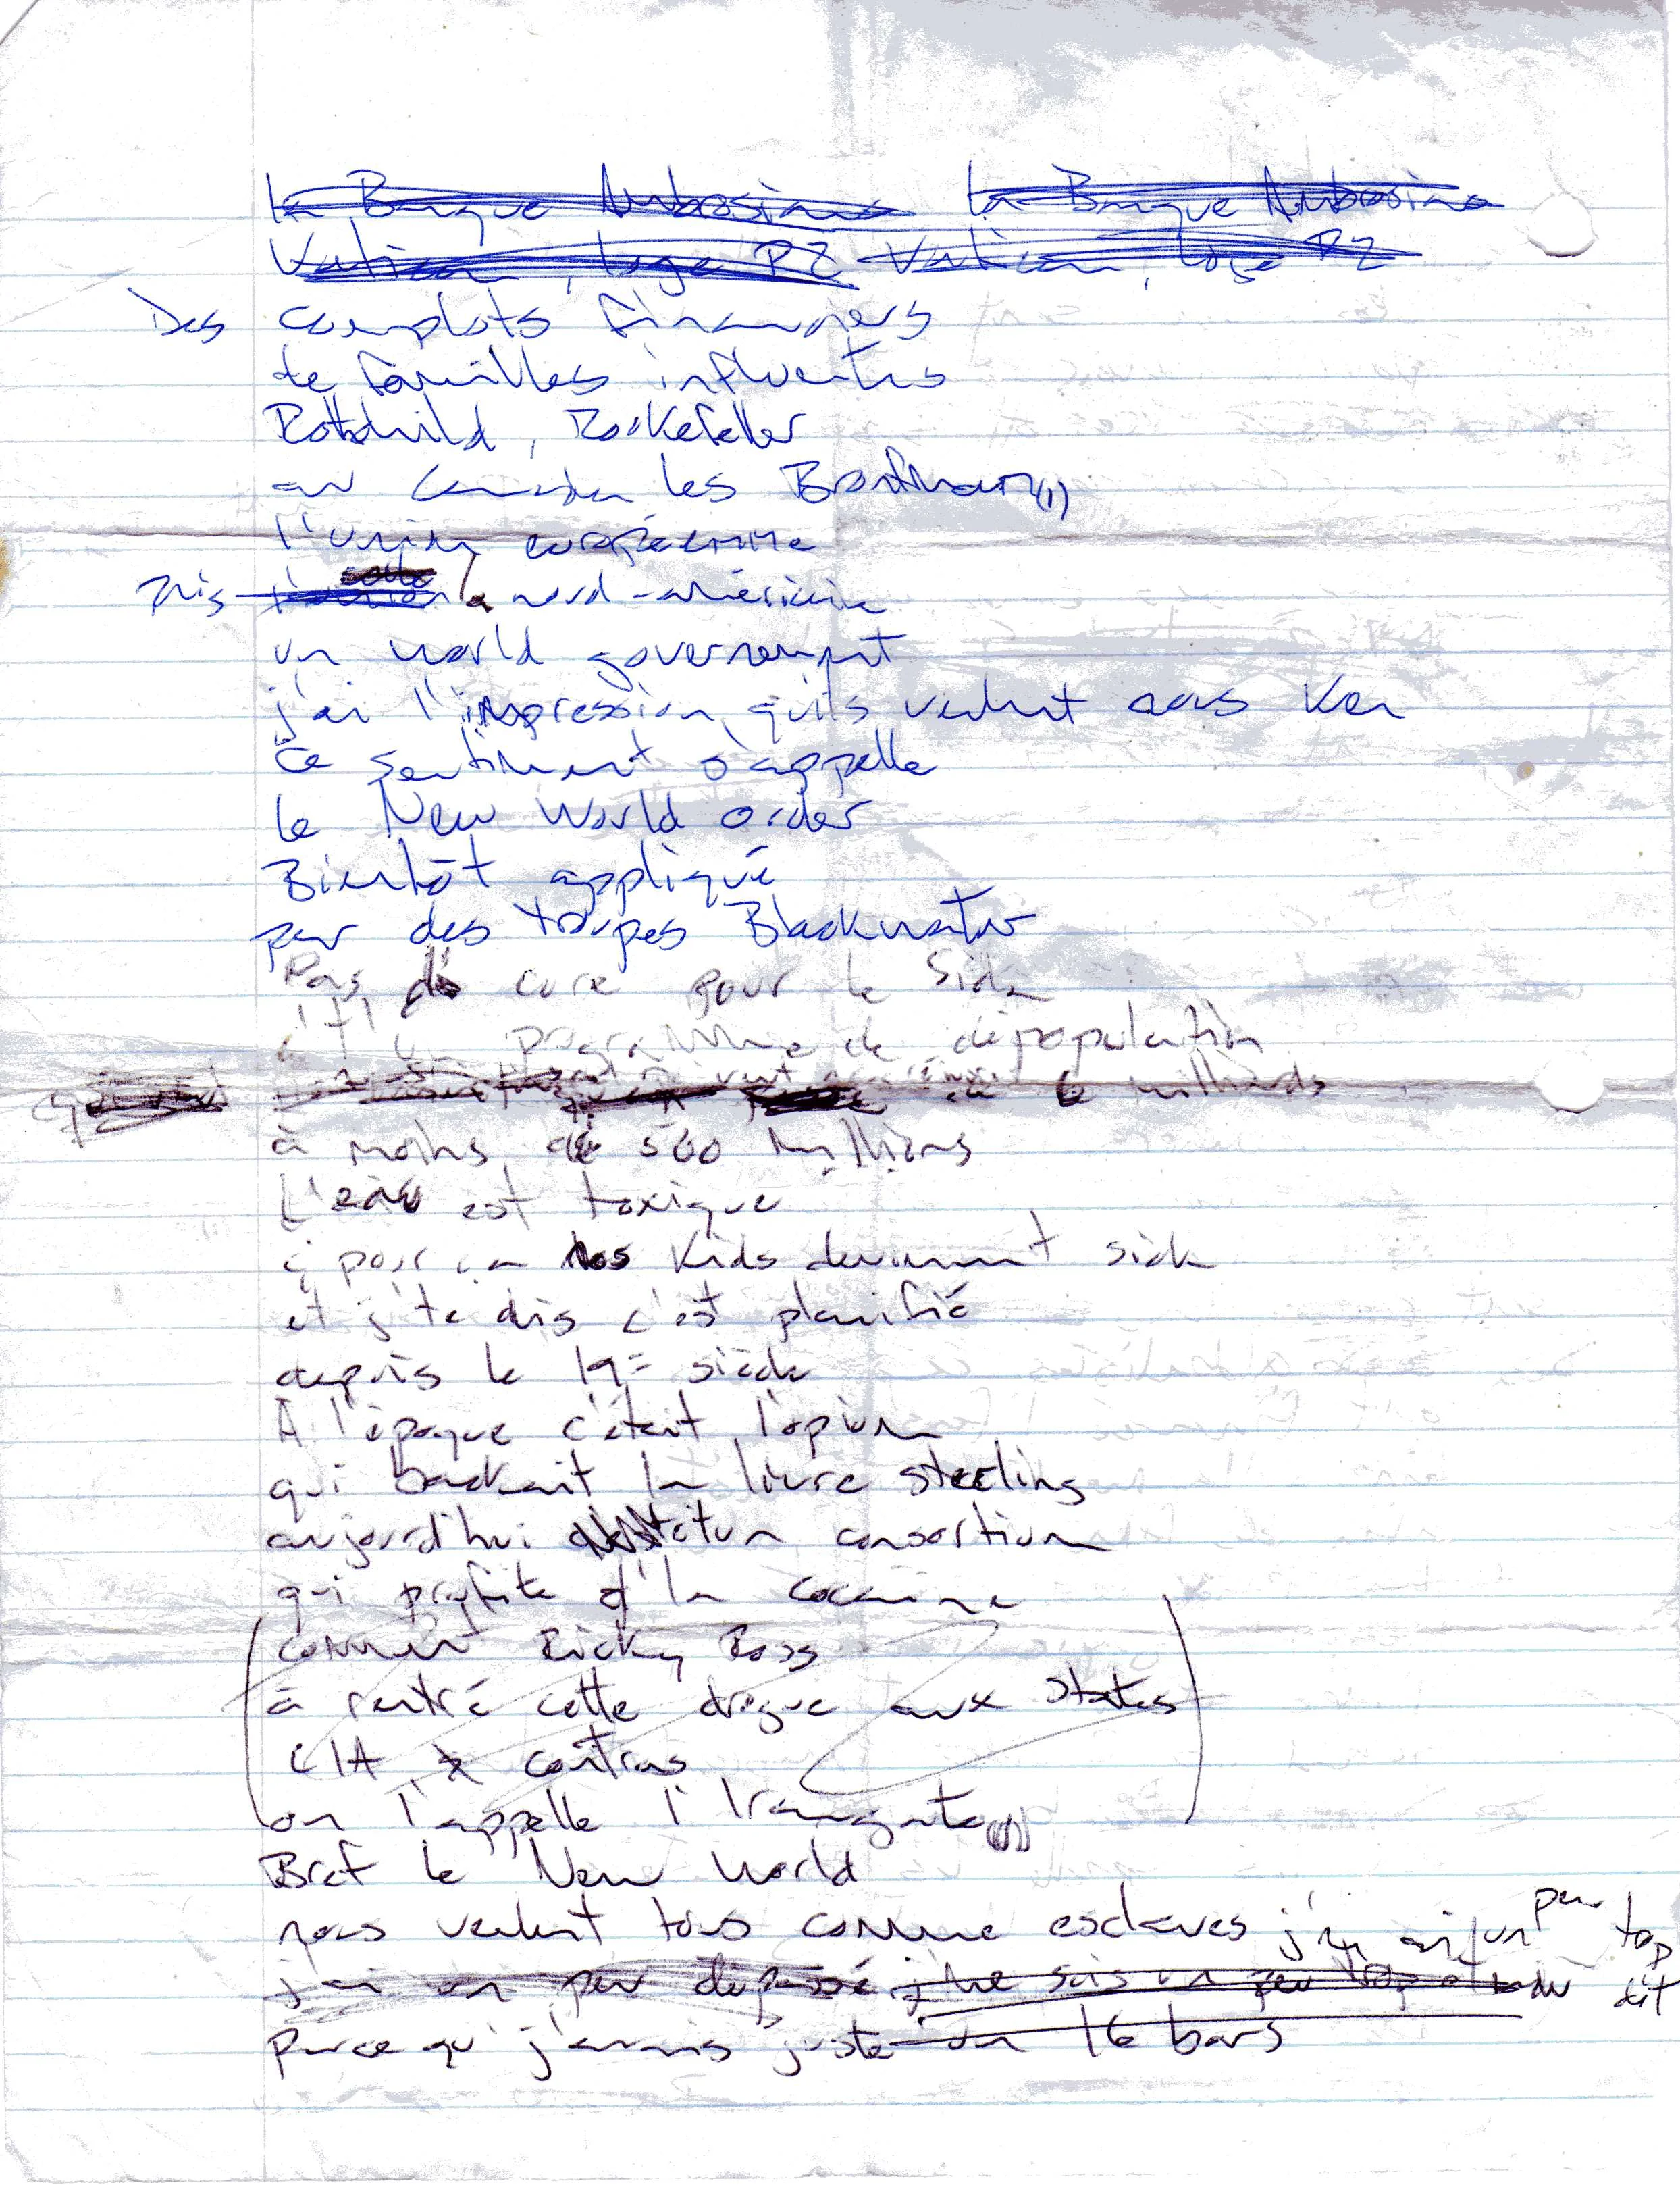 la Banque Ambrosiano la Banque Ambrosiano
Vatican, loge P2 Vatican, loge P2
Des complots financiers
de familles influentes
Rothchild, Rockefeller
au Canada les Bronfman (1)
l'union européenne
puis celle nord-américaine
un world government
j'ai l'impression qu'ils veulent nous ken
Ce sentiment s'appelle
le New World order
Bientôt appliqué
par des troupes Blackwater
Pas de cure pour le Sida
c't'un programme de dépopulation
de milliards
à moins de 500 millions
L'eau est toxique
ç pour ça nos kids deviennent sick
et j'te dis c'est planifié
depuis le 19e siècle
À l'époque c'était l'opium
qui backait la livre sterling
aujourd'hui c't'un consortium
qui profite d'la cocaïne
comment Ricky Ross
a rentré cette drogue aux states
CIA x contras
on l'appelle l'Irangate (1)
Bref le New World
nous veulent tous comme esclaves j'en ai un peu trop dit
j'ai un peu dépassé j'me suis un peu trop étendu
parce qu'j'avais juste un 16 bars